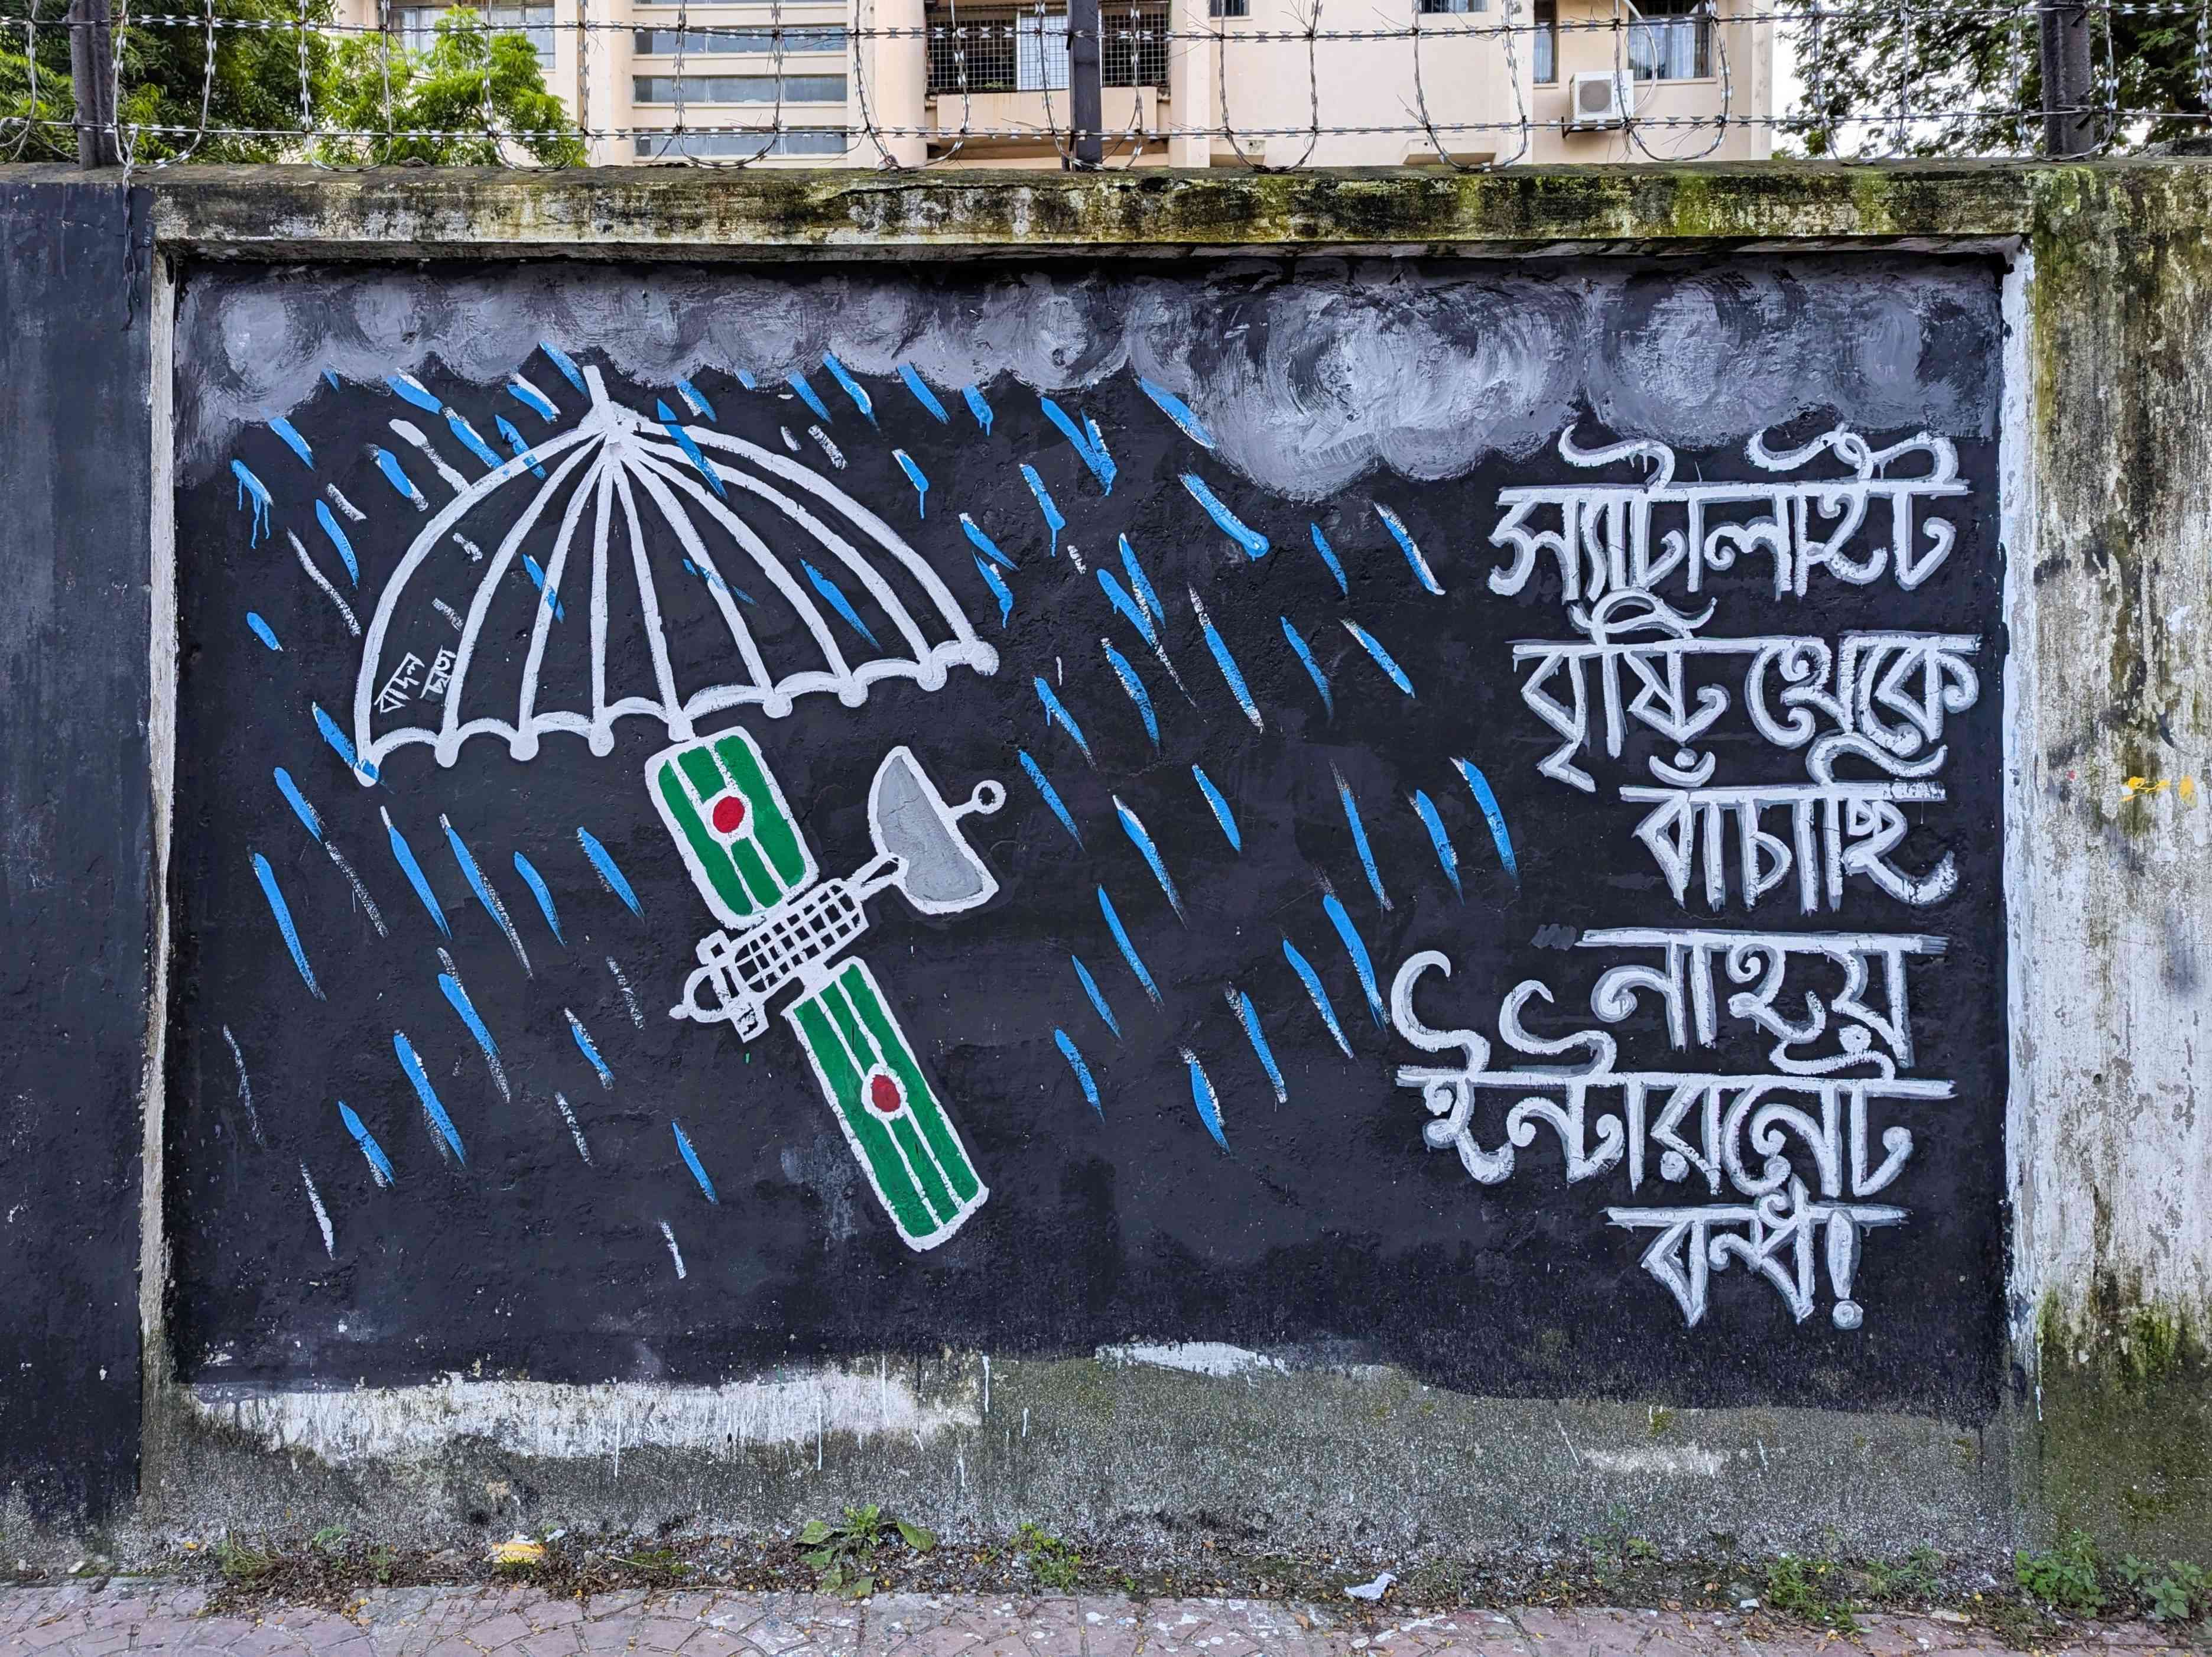 স্যাটালাইট
বৃষ্টি থেকে
বাঁচাছি
নাহয়
ইন্টারনেট
বন্ধ!